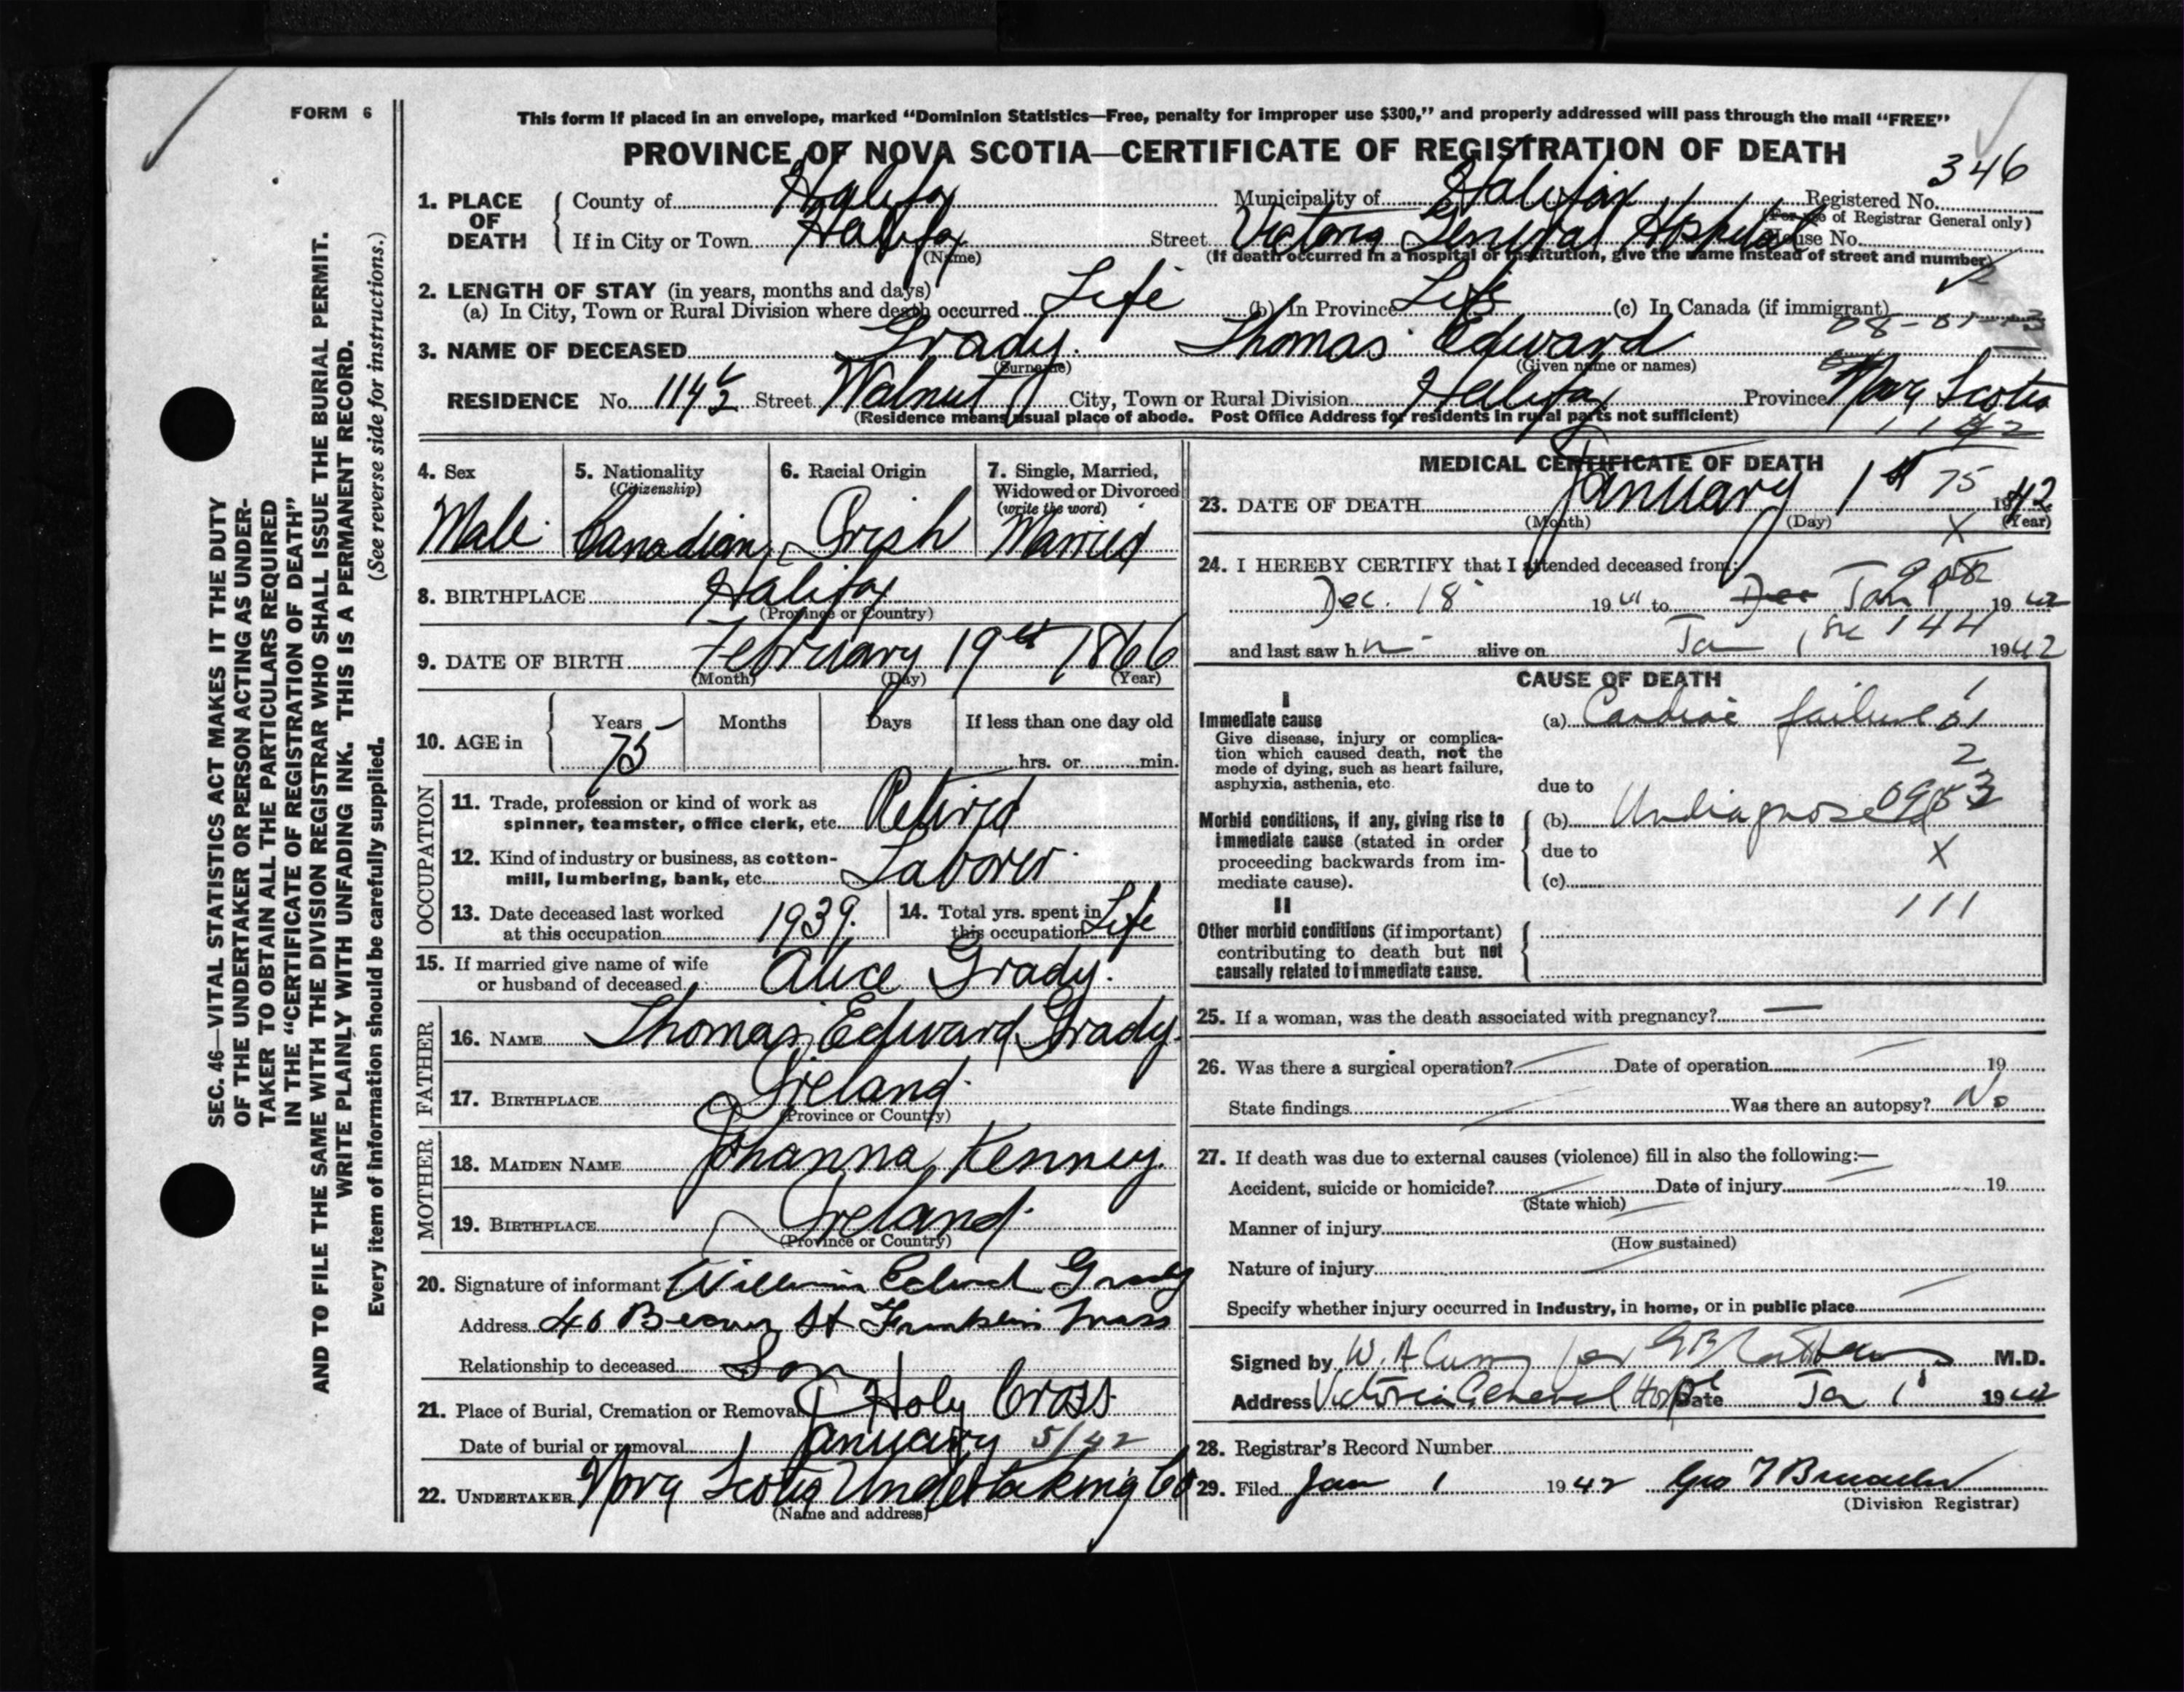 FORM 6
This form if placed in an envelope, marked "Dominion Statistics—Free, penalty for improper use $300," and properly addressed will pass through the mail "FREE"
PROVINCE OF NOVA SCOTIA—CERTIFICATE OF REGISTRATION OF DEATH
346
1. PLACE OF DEATH { County of Halifax Municipality of Halifax Registered No.
(For use of Registrar General only)
If in City or Town Halifax Street Victoria General Hospital House No.
(Name) (If death occurred in a hospital or institution, give the name instead of street and number)
2. LENGTH OF STAY (in years, months and days)
(a) In City, Town or Rural Division where death occurred Life (b) In Province Life (c) In Canada (if immigrant)
3. NAME OF DECEASED Grady. Thomas Edward
(Surname) (Given name or names)
RESIDENCE No. 114½ Street Walnut City, Town or Rural Division Halifax Province Nova Scotia
(Residence means usual place of abode. Post Office Address for residents in rural parts not sufficient)
4. Sex 5. Nationality 6. Racial Origin 7. Single, Married,
(Citizenship) Widowed or Divorced
(write the word)
Male Canadian Irish Married
8. BIRTHPLACE Halifax
(Province or Country)
9. DATE OF BIRTH February 19th 1866
(Month) (Day) (Year)
10. AGE in { Years Months Days If less than one day old
75 hrs. or min.
OCCUPATION
11. Trade, profession or kind of work as
spinner, teamster, office clerk, etc. Retired
12. Kind of industry or business, as cotton-
mill, lumbering, bank, etc. Laborer
13. Date deceased last worked 14. Total yrs. spent in
at this occupation 1939. this occupation Life
15. If married give name of wife
or husband of deceased Alice Grady.
FATHER
16. NAME Thomas Edward Grady.
17. BIRTHPLACE Ireland.
(Province or Country)
MOTHER
18. MAIDEN NAME Johanna Kenney.
19. BIRTHPLACE Ireland.
(Province or Country)
20. Signature of informant William Edward Grady
Address 40 Beaver St Franklin Mass
Relationship to deceased Son
21. Place of Burial, Cremation or Removal Holy Cross
Date of burial or removal January 5/42
22. UNDERTAKER Nova Scotia Undertaking Co
(Name and address)
MEDICAL CERTIFICATE OF DEATH
23. DATE OF DEATH January 1st 75 1942
(Month) (Day) (Year)
X
24. I HEREBY CERTIFY that I attended deceased from:
Dec. 18 1941 to Dec Jan 1942
and last saw h alive on Jan 1 144 1942
CAUSE OF DEATH
I
Immediate cause (a) Cardiac failure
Give disease, injury or complica-
tion which caused death, not the
mode of dying, such as heart failure,
asphyxia, asthenia, etc.
2
due to
Morbid conditions, if any, giving rise to (b) Undiagnosed
immediate cause (stated in order
proceeding backwards from im-
mediate cause).
due to X
(c)
111
II
Other morbid conditions (if important)
contributing to death but not
causally related to immediate cause.
25. If a woman, was the death associated with pregnancy? —
26. Was there a surgical operation? Date of operation 19
State findings Was there an autopsy? No
27. If death was due to external causes (violence) fill in also the following:—
Accident, suicide or homicide? Date of injury 19
(State which)
Manner of injury
(How sustained)
Nature of injury
Specify whether injury occurred in industry, in home, or in public place
Signed by W. A M.D.
Address Victoria General Hosp Date Jan 1 1942
28. Registrar's Record Number
29. Filed Jan 1 1942 Geo
(Division Registrar)
SEC. 46—VITAL STATISTICS ACT MAKES IT THE DUTY
OF THE UNDERTAKER OR PERSON ACTING AS UNDER-
TAKER TO OBTAIN ALL THE PARTICULARS REQUIRED
IN THE "CERTIFICATE OF REGISTRATION OF DEATH"
AND TO FILE THE SAME WITH THE DIVISION REGISTRAR WHO SHALL ISSUE THE BURIAL PERMIT.
WRITE PLAINLY WITH UNFADING INK. THIS IS A PERMANENT RECORD.
Every item of information should be carefully supplied. (See reverse side for instructions.)